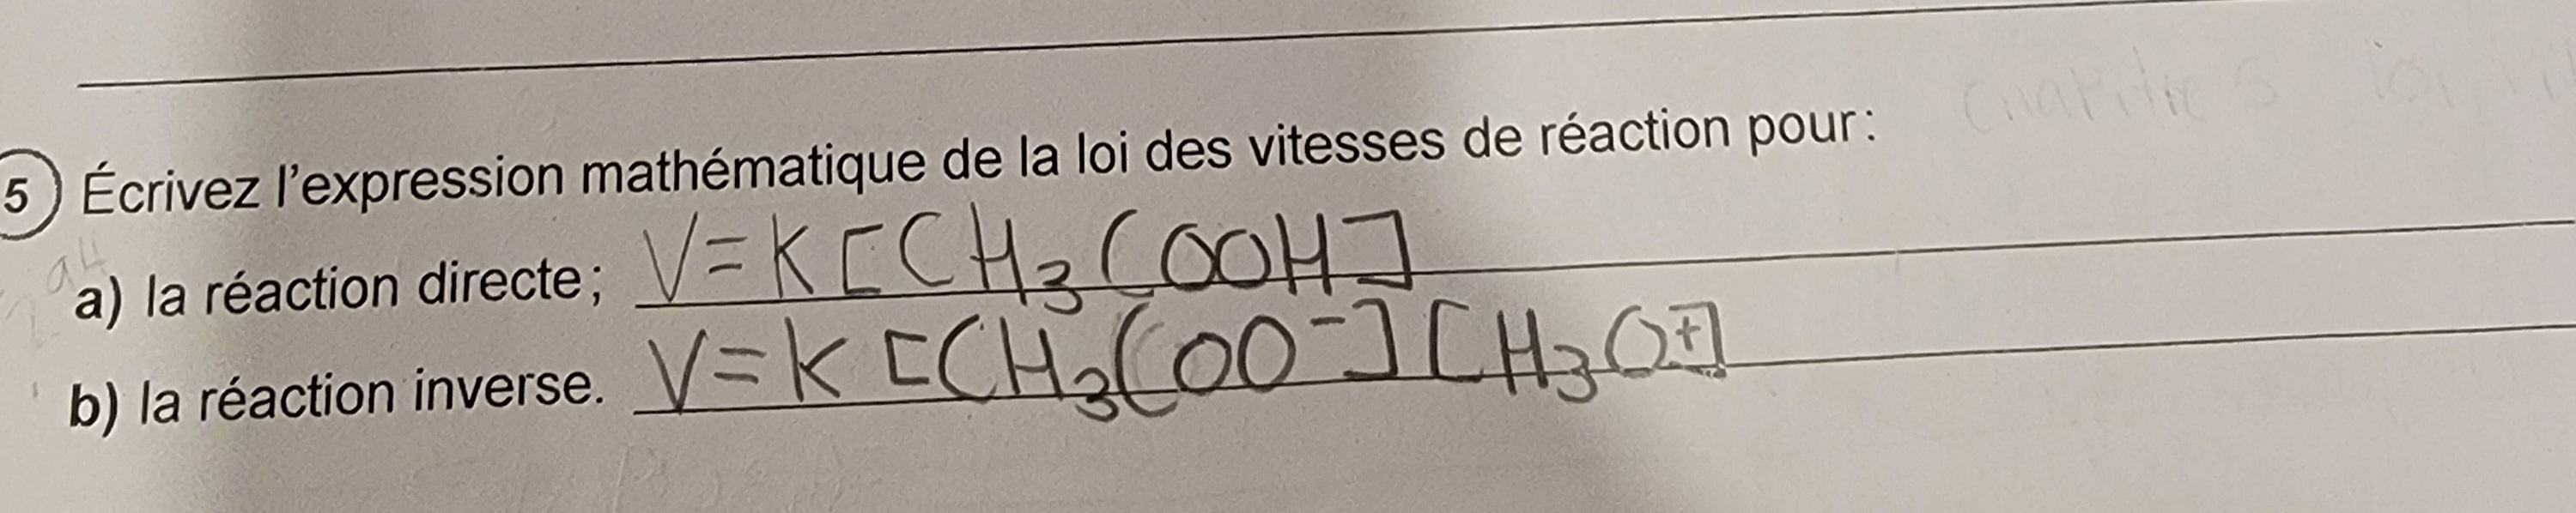 Chapitre 5 loi
5) Écrivez l'expression mathématique de la loi des vitesses de réaction pour:
a) la réaction directe; V=K[CH₃COOH]
b) la réaction inverse. V=K[CH₃COO⁻][H₃O⁺]